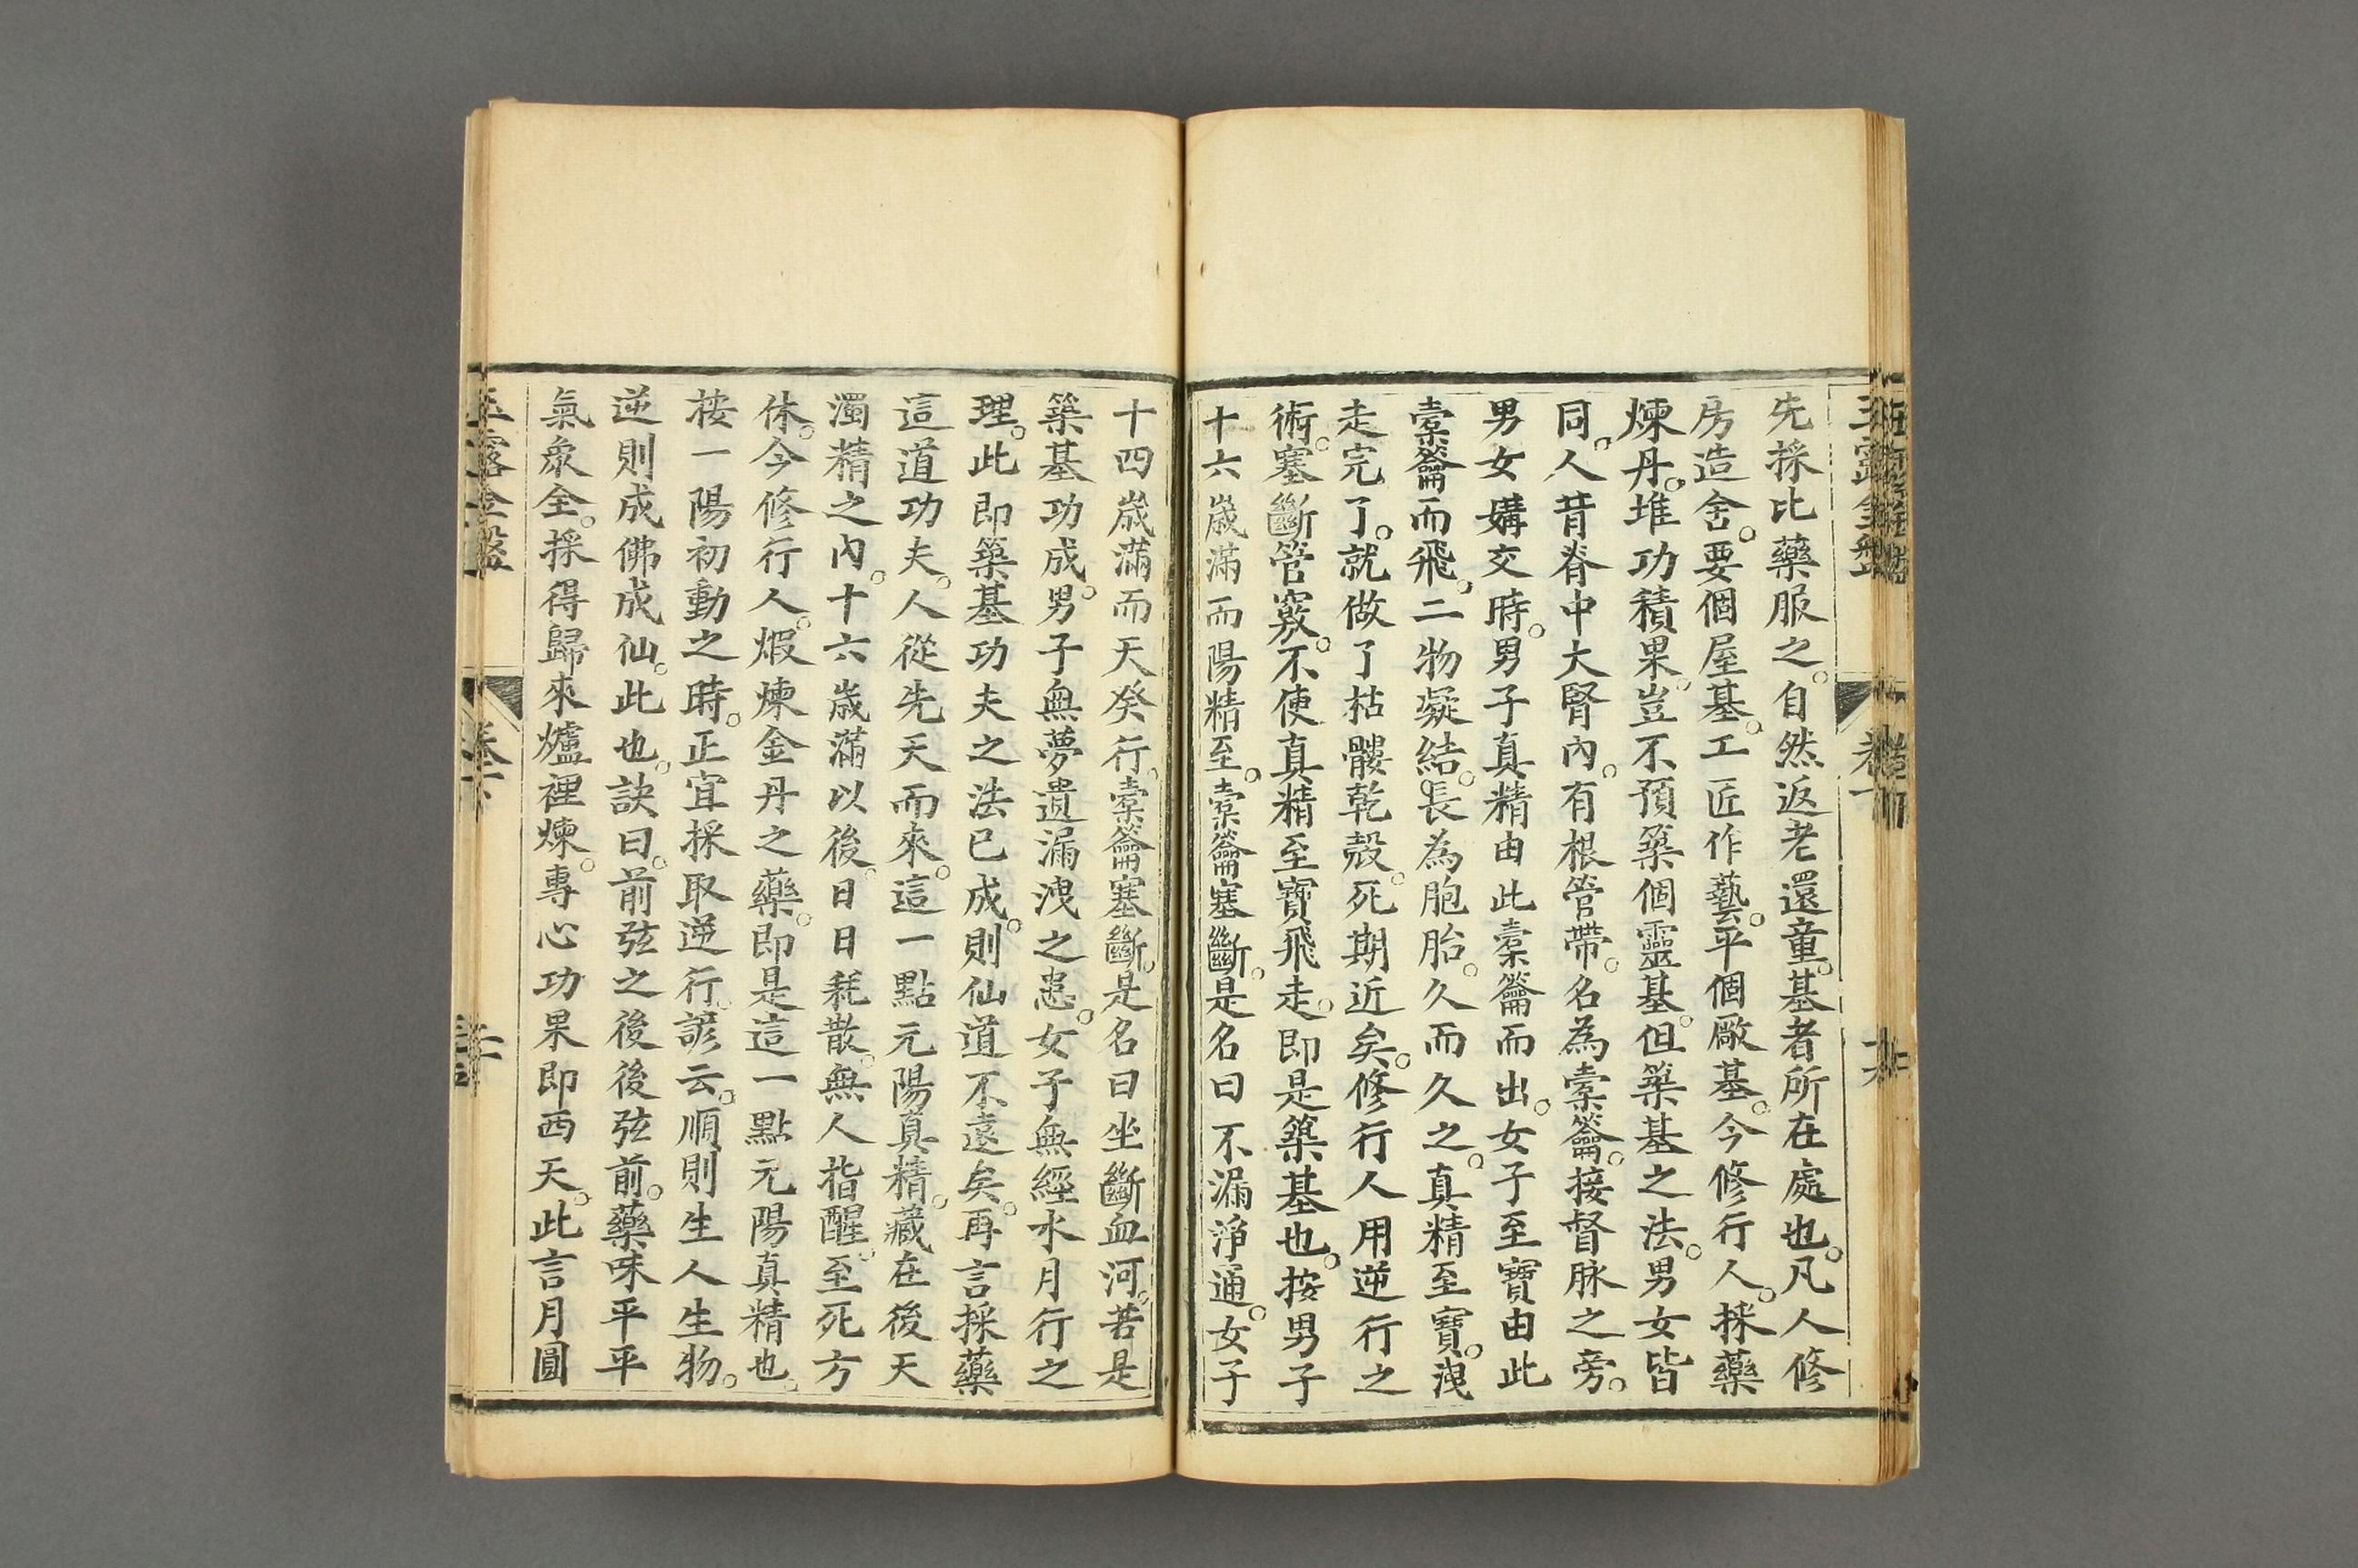 先採比藥服之。自然返老還童。基者所在處也。凡人修
房造舍。要個屋基。工匠作藝。平個廠基。今修行人。採藥
煉丹。堆功積果。豈不預築個靈基。但築基之法。男女皆
同。人背脊中大腎內。有根管帶。名為橐籥。接督脉之旁。
男女媾交時。男子真精由此橐籥而出。女子至寶由此
橐籥而飛。二物凝結。長為胞胎。久而久之。真精至寶。洩
走完了。就做了枯髏乾殼。死期近矣。修行人用逆行之
術。塞斷管竅。不使真精至寶飛走。即是築基也。按男子
十六歲滿而陽精至。橐籥塞斷。是名曰不漏淨通。女子
十四歲滿而天癸行。橐籥塞斷。是名曰坐斷血河。若是
築基功成。男子無夢遺漏洩之患。女子無經水月行之
理。此即築基功夫之法已成。則仙道不遠矣。再言採藥
這道功夫。人從先天而來。這一點元陽真精。藏在後天
濁精之內。十六歲滿以後。日日耗散。無人指醒。至死方
休。今修行人。煆煉金丹之藥。即是這一點元陽真精也。
接一陽初動之時。正宜採取逆行。諺云。順則生人生物。
逆則成佛成仙。此也。訣曰。前弦之後後弦前。藥味平平
氣象全。採得歸來爐裡煉。專心功果即西天。此言月圓
玉露金盤